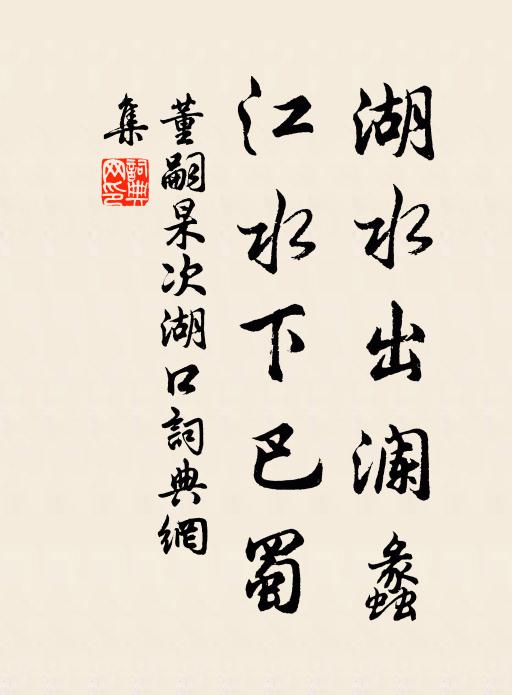 湖水出瀾蠡
江水下巴蜀
董嗣杲次湖口詞典網
集
詞典網印